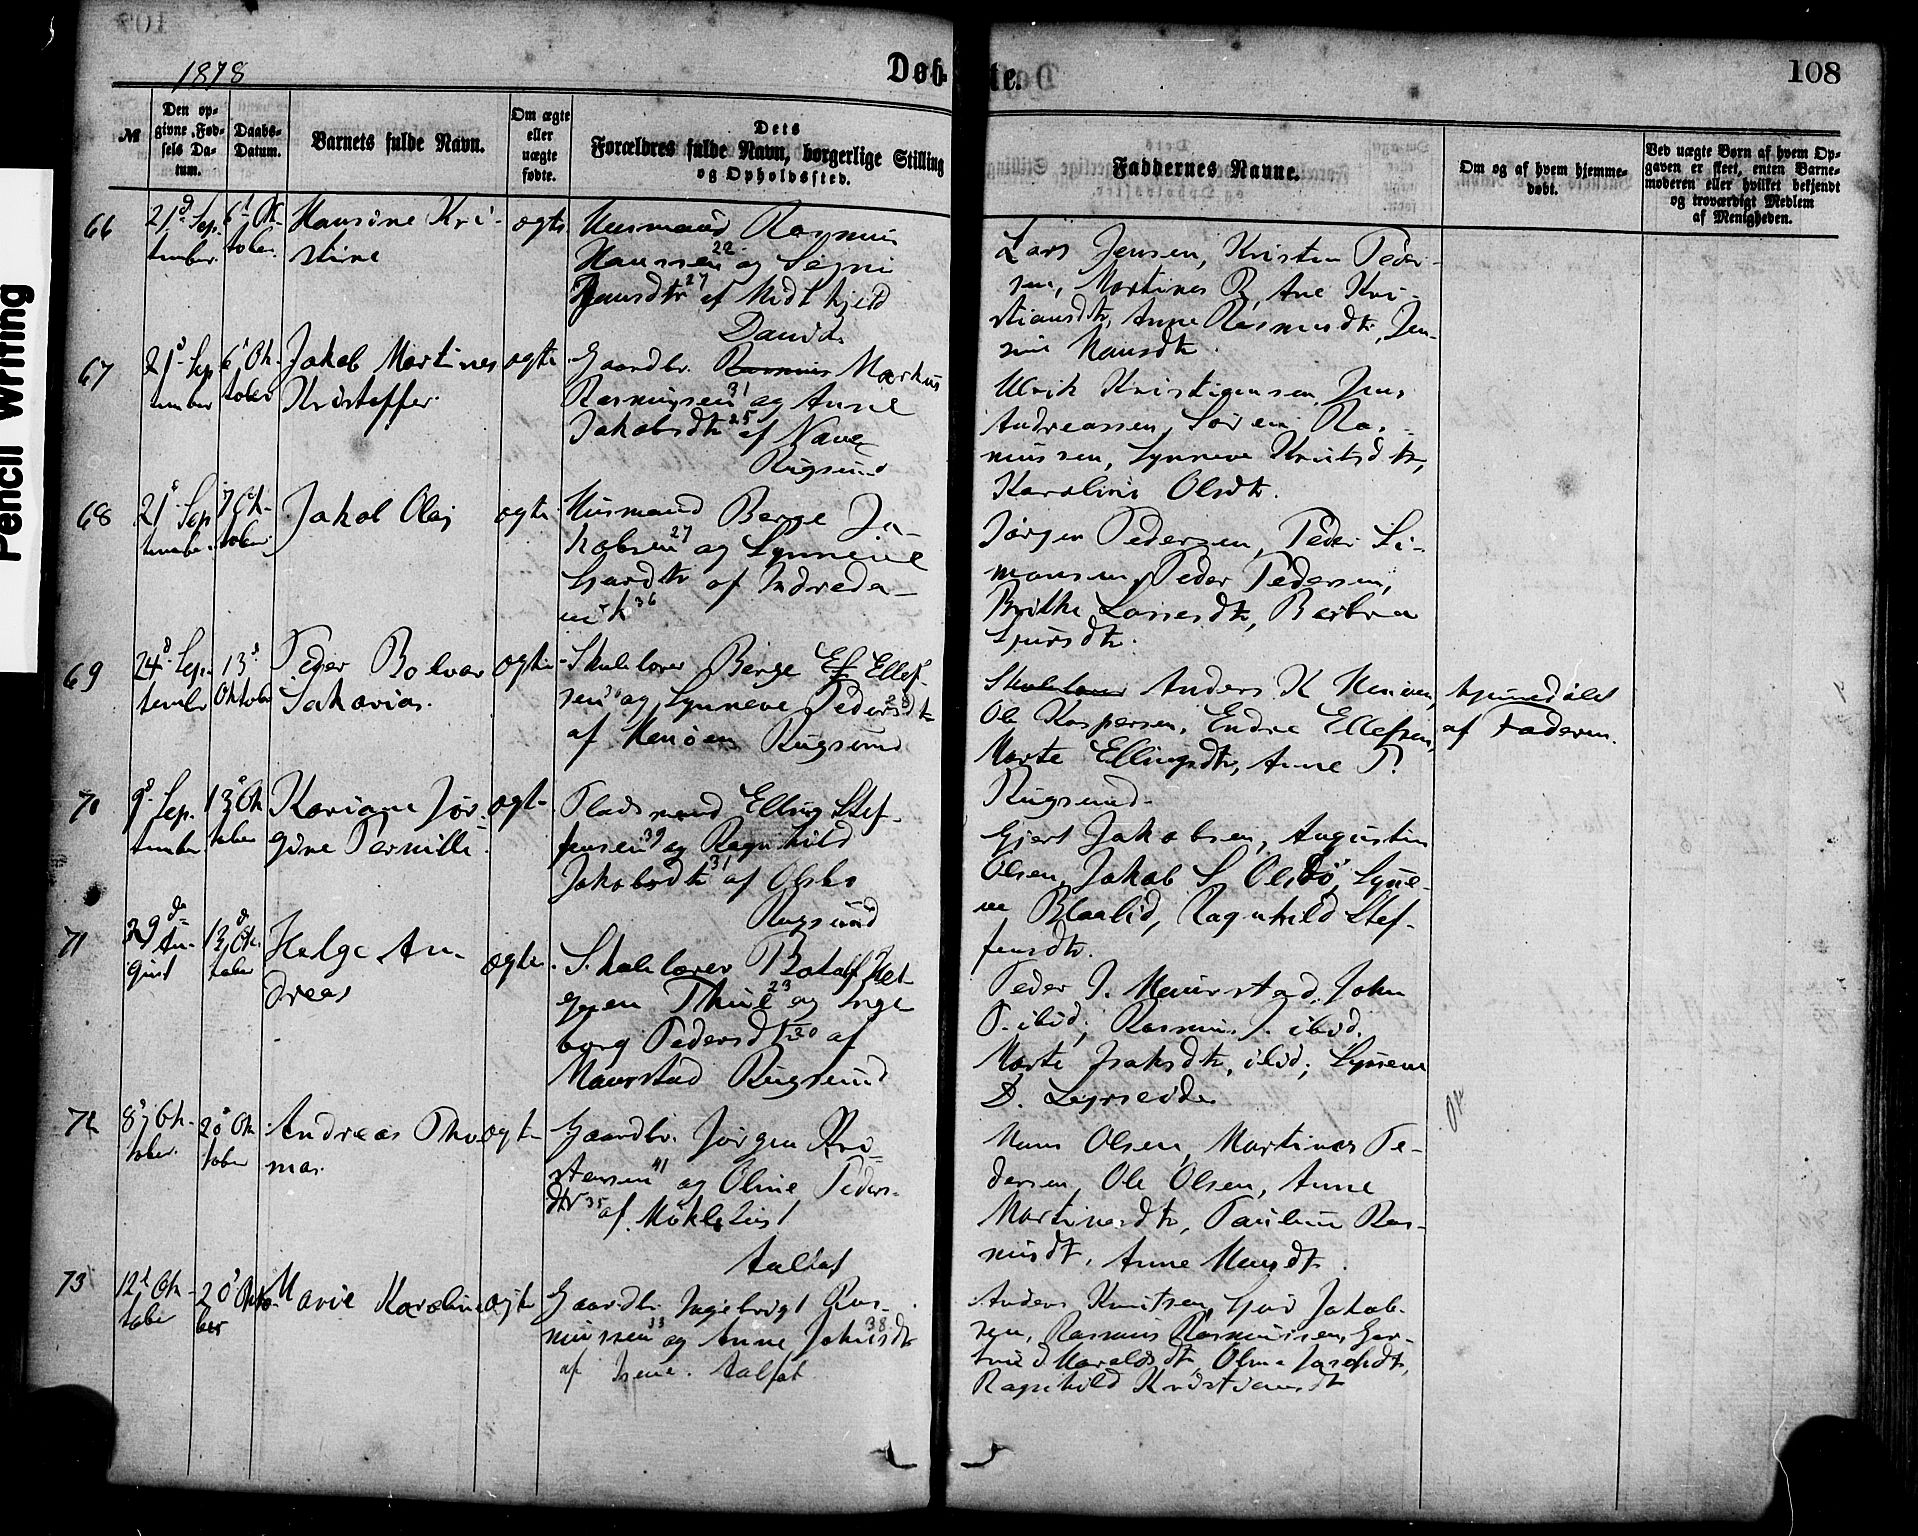 1878
Døbte.
108
Pencil writing
№
Den opgivne Fødsels Datum.
Daabs-Datum.
Barnets fulde Navn.
Om ægte eller uægte fødte.
Dets Forældres fulde Navn, borgerlige Stilling og Opholdssted.
Faddernes Navne.
Om og af hvem hjemmedøbt.
Ved uægte Børn af hvem Opgaven er skeet, enten Barnemoderen eller hvilket bekjendt og troværdigt Medlem af Menigheden.
66
21d Sep- 6d Ok
tember. tober.
Hansine Kri-
stine
ægte
Husmand Rasmus
Hanssen 22 og
Hansdtr 27 af Midthjeld
Davik
Lars Jensen, Kristen Peder-
sen, Martines R, Ane Kri-
stiansdtr, Anne Rasmusdtr, Jen-
sine Hansdtr.
67
21d Sep 6d Ok-
tember tober
Jakob Martines
Kristoffer.
ægte
Gaardbr. Rasmus Markus
Rasmussen 31 og Anne
Jakobsdtr 25 af Nave
Rugsund
Ulrik Kristiansen, Jens
Andreassen, Søren Ras-
mussen, Synneve Knutsdtr,
Karoline Olsdtr.
68
21d Sep 7d Ok-
tember tober
Jakob Olai
ægte
Husmand Berge Ja-
kobsen 27 og Synneve
af Indreda-
36
Jørgen Pedersen, Peder Si-
monsen, Peder Pedersen,
Brithe Lassesdtr, Barbra
Sjursdtr.
69
24d Sep- 13d
tember Oktober
Peder Bolvar
Sakarias.
ægte
Skolelærer Berge Ef Ellef-
sen og Synneve Pedersdtr 28
af Henøen Rugsund
Skolelærer Anders K Henøen,
Ole Kaspersen, Endre Ellefsen,
Marte Ellingsdtr, Anne P.
Rugsund.
hjemmedøbt
af Faderen.
70
9d Sep- 13d Ok
tember tober
Kariane Jør-
gine Pernille
ægte
Pladsmand Elling Stef-
fensen 39 og Ragnhild
Jakobsdtr 31 af
Rugsund
Gjert Jakobsen, Augustin
Olsen, Jakob S. Synne-
ve Blaalid, Ragnhild Stef-
fensdtr.
71
29de Au- 13d Ok
gust tober
Helge An-
dreas
ægte
Skolelærer Botolf Hel-
gesen Thue 23 og Inge
borg Pedersdtr 20 af
Maurstad Rugsund
Peder J. Maurstad, John
P. ibid; Rasmus J. ibid.
Marte Isaksdtr, ibid; Synneve
D.
72
8d Ok- 20d Ok
tober. tober
Andreas Tho-
mas.
ægte
Gaardbr. Jørgen Kri-
stensen 41 og Oline Peders-
dtr 35 af Myklebust
Aalfot
Hans Olsen, Martinus Pe-
dersen, Ole Olsen, Anne
Martinusdtr, Pauline Ras-
musdtr, Anne Hansdtr.
73
12d Ok- 20d Okto-
tober ber
Marie Karoline
ægte
Gaardbr. Ingebrigt Ras-
mussen 33 og Anne Johnsdtr 38
af Isene. Aalfot
Anders Knutsen, Sjur Jakob-
sen, Rasmus Rasmussen, Ger-
trud Haraldsdtr, Olina Josefsdtr,
Ragnhild Kristiansdtr